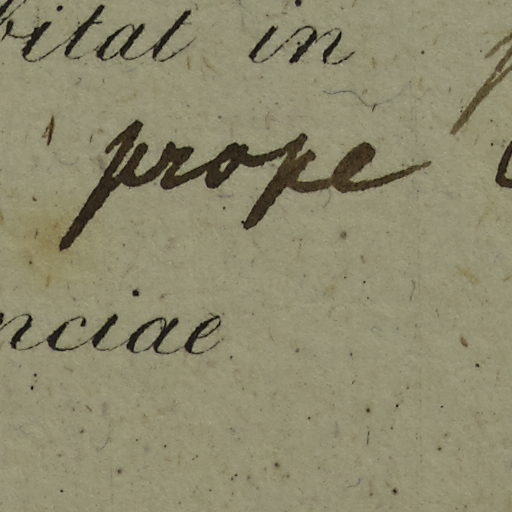 bitat in
prope
nciae